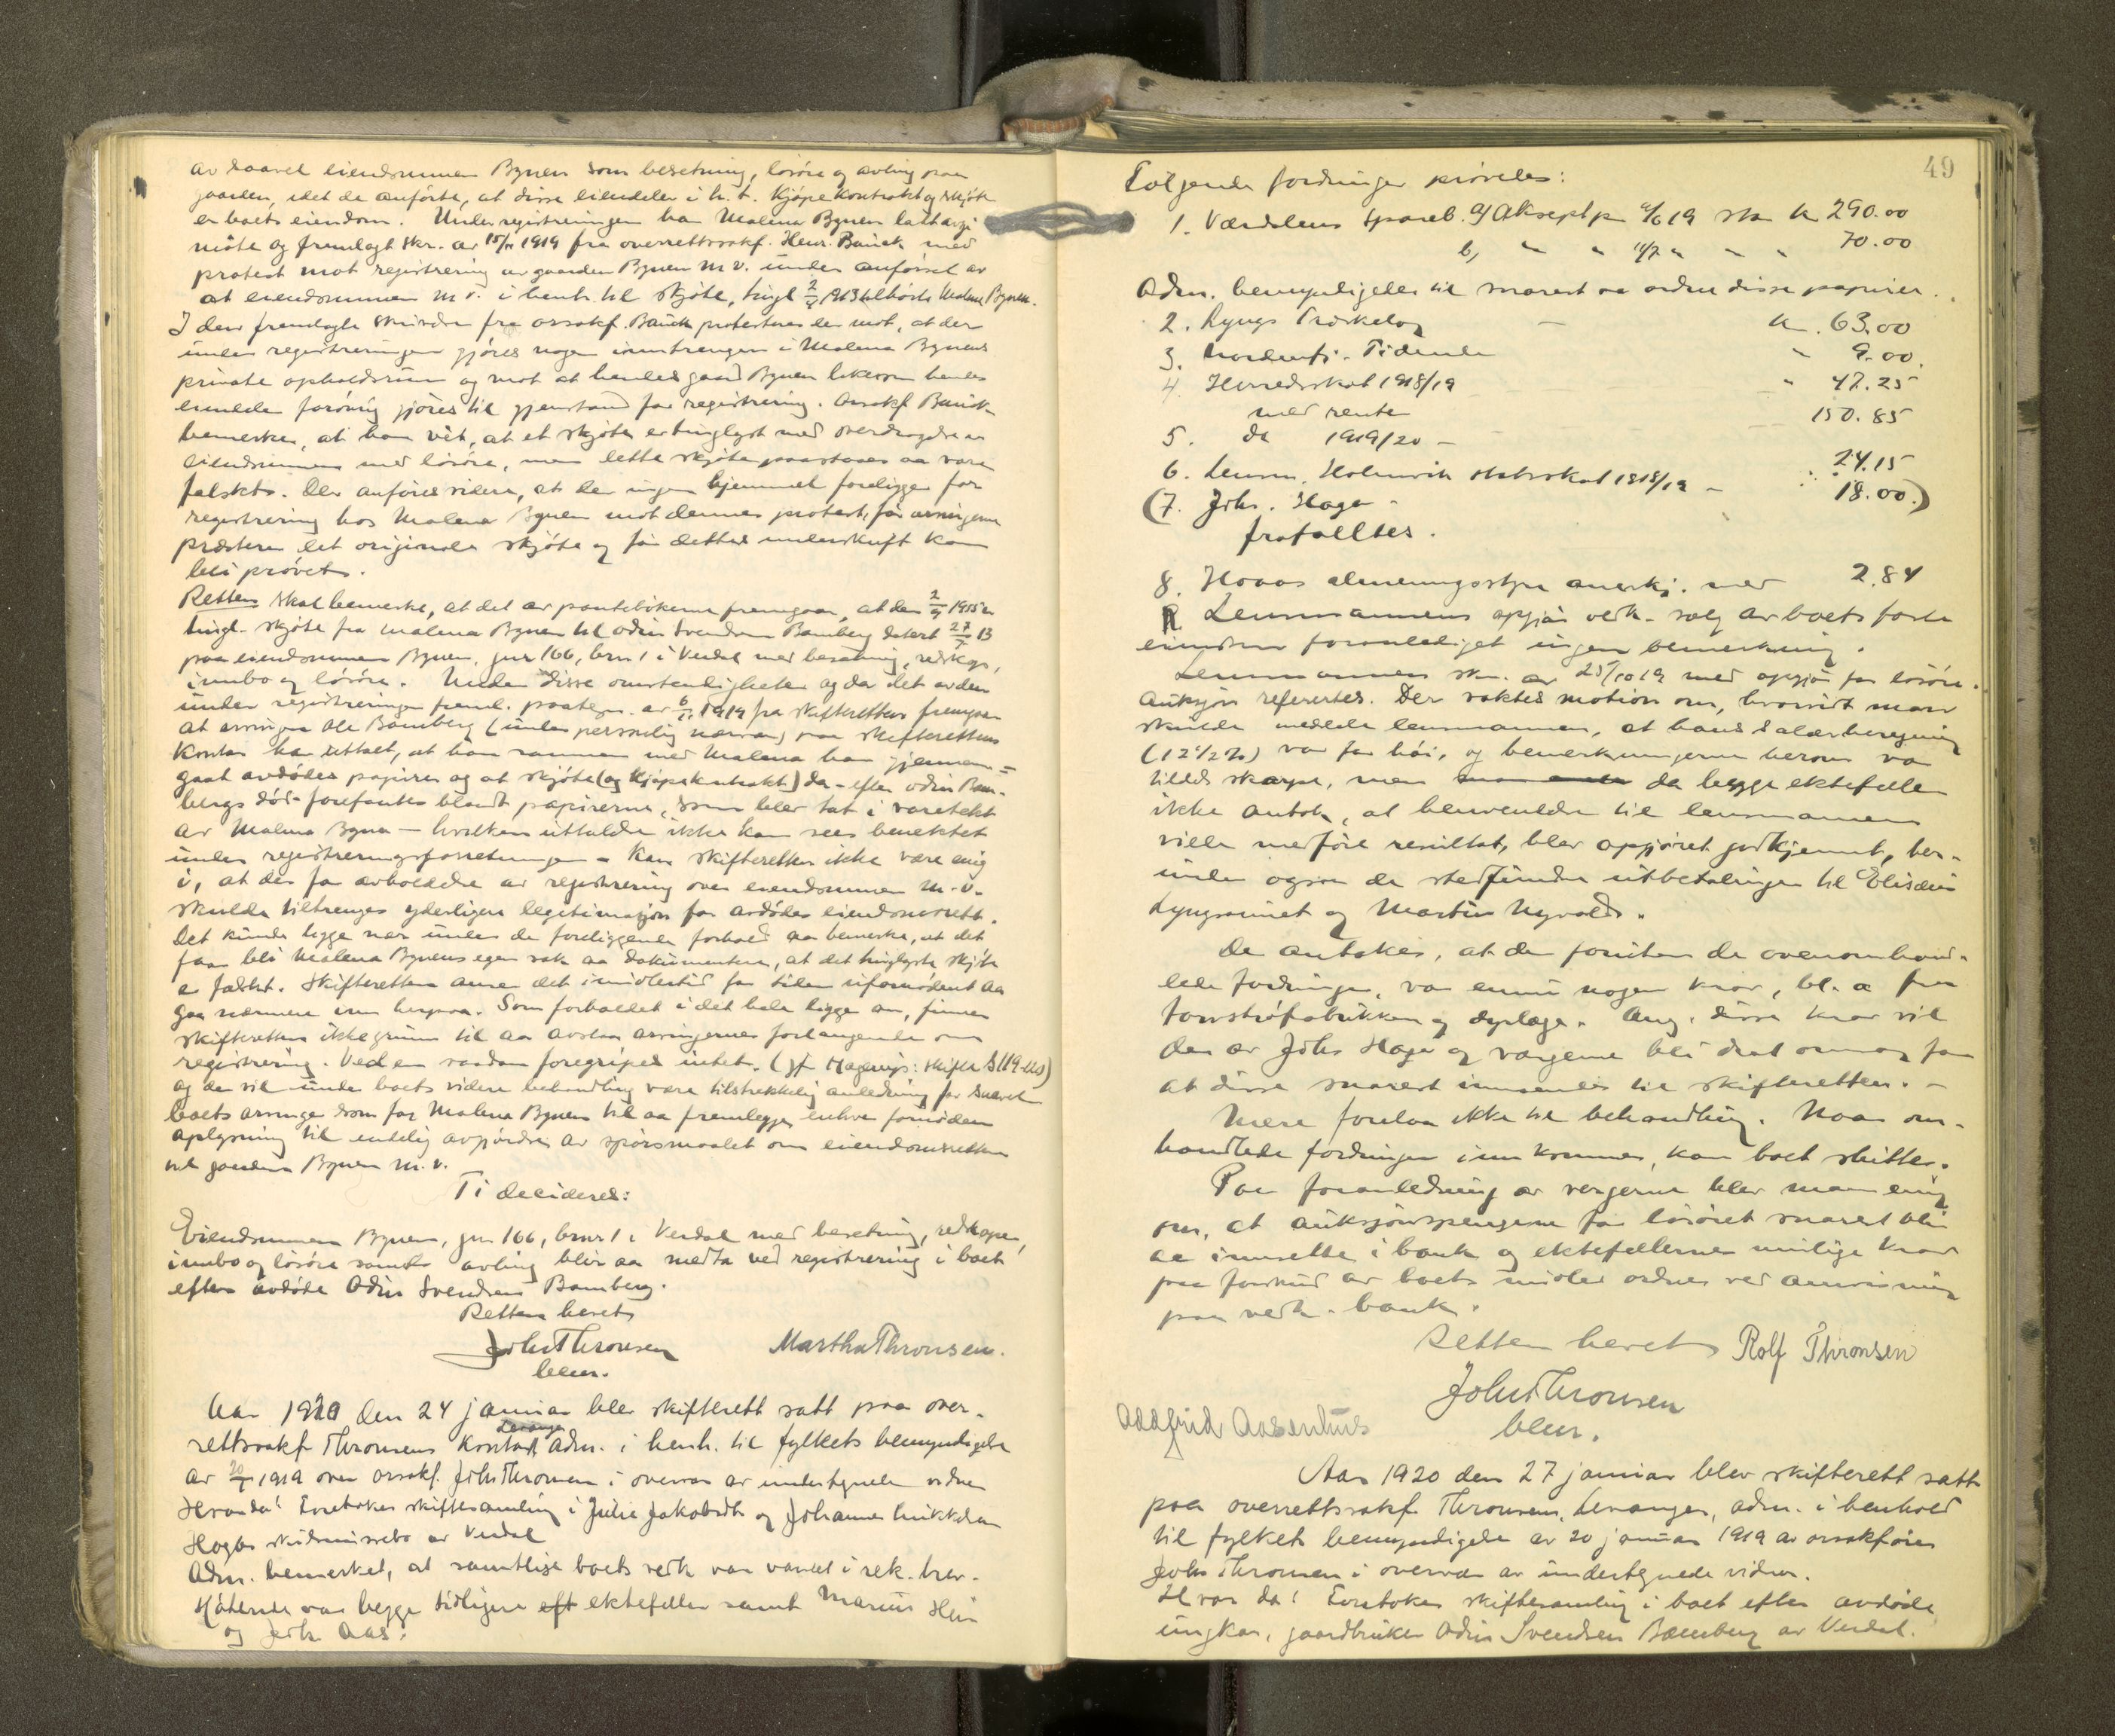 av saavel eiendommen Bynen som besetning, løsøre og avling paa
gaarden, idet de anførte, at disse eiendeler i h. t. kjøpekontrakt og skjøte
er boets eiendom. Under registreringen har Malena Bynen latt
møte og fremlagt skr. av 15/11 1919 fra overrettssakf. Henr. Bauck med
protest mot registrering av gaarden Bynen m. v. under anførsel av
at eiendommen m. v. i henh. til skjøte, tingl. 1913 tilhørte Malena Bynen.
I den fremlagte skrivelse fra orsakf. Bauck protesteres der mot, at der
under registreringen gjøres nogen inntrengen i Malena Bynens
private opholdsrum og mot at hendes gaard Bynen likesom hendes
eiendele forøvrig gjøres til gjenstand for registrering. Orsakf Bauck
bemerker, at han vet, at et skjøte er tinglyst med overdragelse av
eiendommen med løsøre, men dette skjøte paastaaes aa være
falskt. Der anføres videre, at der ingen hjemmel foreligger for
registrering hos Malena Bynen mot dennes protest, før arvingerne
præsterer det originale skjøte og før dettes underskrift kan
bli prøvet.
Retten skal bemerke, at det av pantebøkerne fremgaar, at den
tingl. skjøte fra Malena Bynen til Odin Svendsen Bamberg datert 27 13
paa eiendommen Bynen, gnr 166, brnr 1 i Verdal med besætning, redskap,
innbo og løsøre. Under disse omstendigheter og da det av den
under registreringen freml. paategn. av 1919 fra skifteretten fremgaar
at arvingen Ole Bamberg (under personlig nærvær) paa skifterettens
kontor har uttalt, at han sammen med Malena har gjennem-
gaat avdødes papirer og at skjøte (og kjøpekontrakt) da - efter Odin Bam-
bergs død - forefantes blandt papirerne, som blev tat i varetekt
av Malena Bynen - hvilken uttalelse ikke kan sees benektet
under registreringsforretningen - kan skifteretten ikke være enig
i, at der for avholdelse av registrering over eiendommen m. v.
skulde tiltrenges yderligere legitimasjon for avdødes eiendomsrett.
Det kunde ligge nær under de foreliggende forhold aa bemerke, at det
faar bli Malena Bynens egen sak aa dokumentere, at det tinglyste skjøte
er falskt. Skifteretten anser det imidlertid for tiden ufornødent aa
gaa nærmere inn herpaa. Som forholdet i det hele ligger an, finner
skifteretten ikke grunn til aa avslaa arvingernes forlangende om
registrering. Ved en saadan foregripes intet. (jfr Hagerups: skifte S 119-
og der vil under boets videre behandling være tilstrekkelig anledning for saavel
boets arvinger som for Malena Bynen til aa fremlegge enhver fornøden
oplysning til endelig avgjørelse av spørsmaalet om eiendomsretten
til gaarden Bynen m. v.
Ti decideres:
Eiendommen Bynen, gnr 166, brnr 1 i Verdal med besetning, redskaper,
innbo og løsøre samt avling blir aa medta ved registrering i boet
efter avdøde Odin Svendsen Bamberg.
Retten hevet
Johs Thronsen
bem.
Martha Thronsen.
Aar 1920 den 24 januar blev skifterett satt paa over-
rettssakf Thronsens kontor, Levanger Adm. i henh. til fylkets bemyndigelse
av 20/1 1919 over orsakf. Johs Thronsen i overvær av undertegnede vidner
Hvorda: Foretokes skiftesamling i Julie Jakobsdtr og Johannes
Hagas skilsmissebo av Verdal
Adm. bemerket, at samtlige boets vedk. var varslet i rek. brev.
Møtende var begge tidligere eft ektefeller samt Marius Hein
og Joh. Aas.
49
Følgende fordringer prøvedes:
1. Værdalens Spareb. a) Aksept pr 19 stor kr 290.00
b) " " 11/7 " " " 70.00
Adm. bemyndigedes til snarest aa ordne disse papirer.
2. Lyngs Træskelag - kr. 63.00
3. Nordenfj. Tidende " 9.00.
4. Herredsskat 1918/19 " 47.25
med rente
5. do 1919/20 - 150.85
6. Lensm. Holmvik statsskat 1918/19 - 24.15
(7. Johs. Haga - 18.00.)
frafalltes.
8. Hovas almenningsstyre anerkj. med 2.84
Lensmannens opgjør vedk. salg av boets faste
eiendom foranlediget ingen bemerkning.
Lensmannens skr. av 25/10 19 med opgjør for løsøre-
auksjon refertes. Der vaktes motion om, hvorvidt man
skulde meddele lensmannen, at hans salærberegning
(12 1/2 %) var for høi, og bemerkningerne herom var
tildels skarpe, men da begge ektefeller
ikke antok, at henvendelse til lensmannen
ville medføre resultat, blev opgjøret godkjennt, her-
under ogsaa de stedfundne utbetalinger til Elisæus
Lyngsaunet og Martin Nyvold.
De antokes, at der foruten de ovenomhand-
lede fordringer, var ennu nogen krav, bl. a fra
torvstrøfabrikken og dyrlæge. Ang. disse krav vil
der av Johs Haga og vergerne bli dratt omsorg for
at disse snarest innsendes til skifteretten. -
Mere forelaa ikke til behandling. Naar om-
handlede fordringer innkommer, kan boet sluttes.
Paa foranledning av vergerne blev man enig
om, at auksjonspengene for løsøret snarest blir
aa innsette i bank og ektefellernes mulige krav
paa forskud av boets midler ordnes ved anvisning
paa vedk. bank.
Retten hevet
Rolf Thronsen
Johs Thronsen
bem.
Oddfrid Aasenhus
Aar 1920 den 27 januar blev skifterett satt
paa overrettssakf. Thronsens, Levanger, adm. i henhold
til fylkets bemyndigelse av 20 januar 1919 av orsakfører
Johs Thronsen i overvær av undertegnede vidner.
Hvorda: Foretokes skiftesamling i boet efter avdøde
ungkar, gaardbruker Odin Svendsen Bamberg av Verdal.